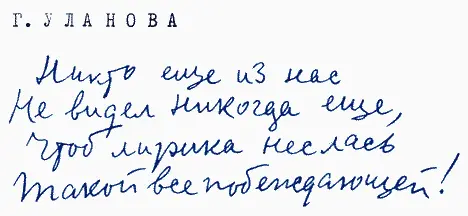 Г. УЛАНОВА
Никто еще из нас
Не видел никогда еще,
Чтоб лирика неслась
Такой всепобеждающей!